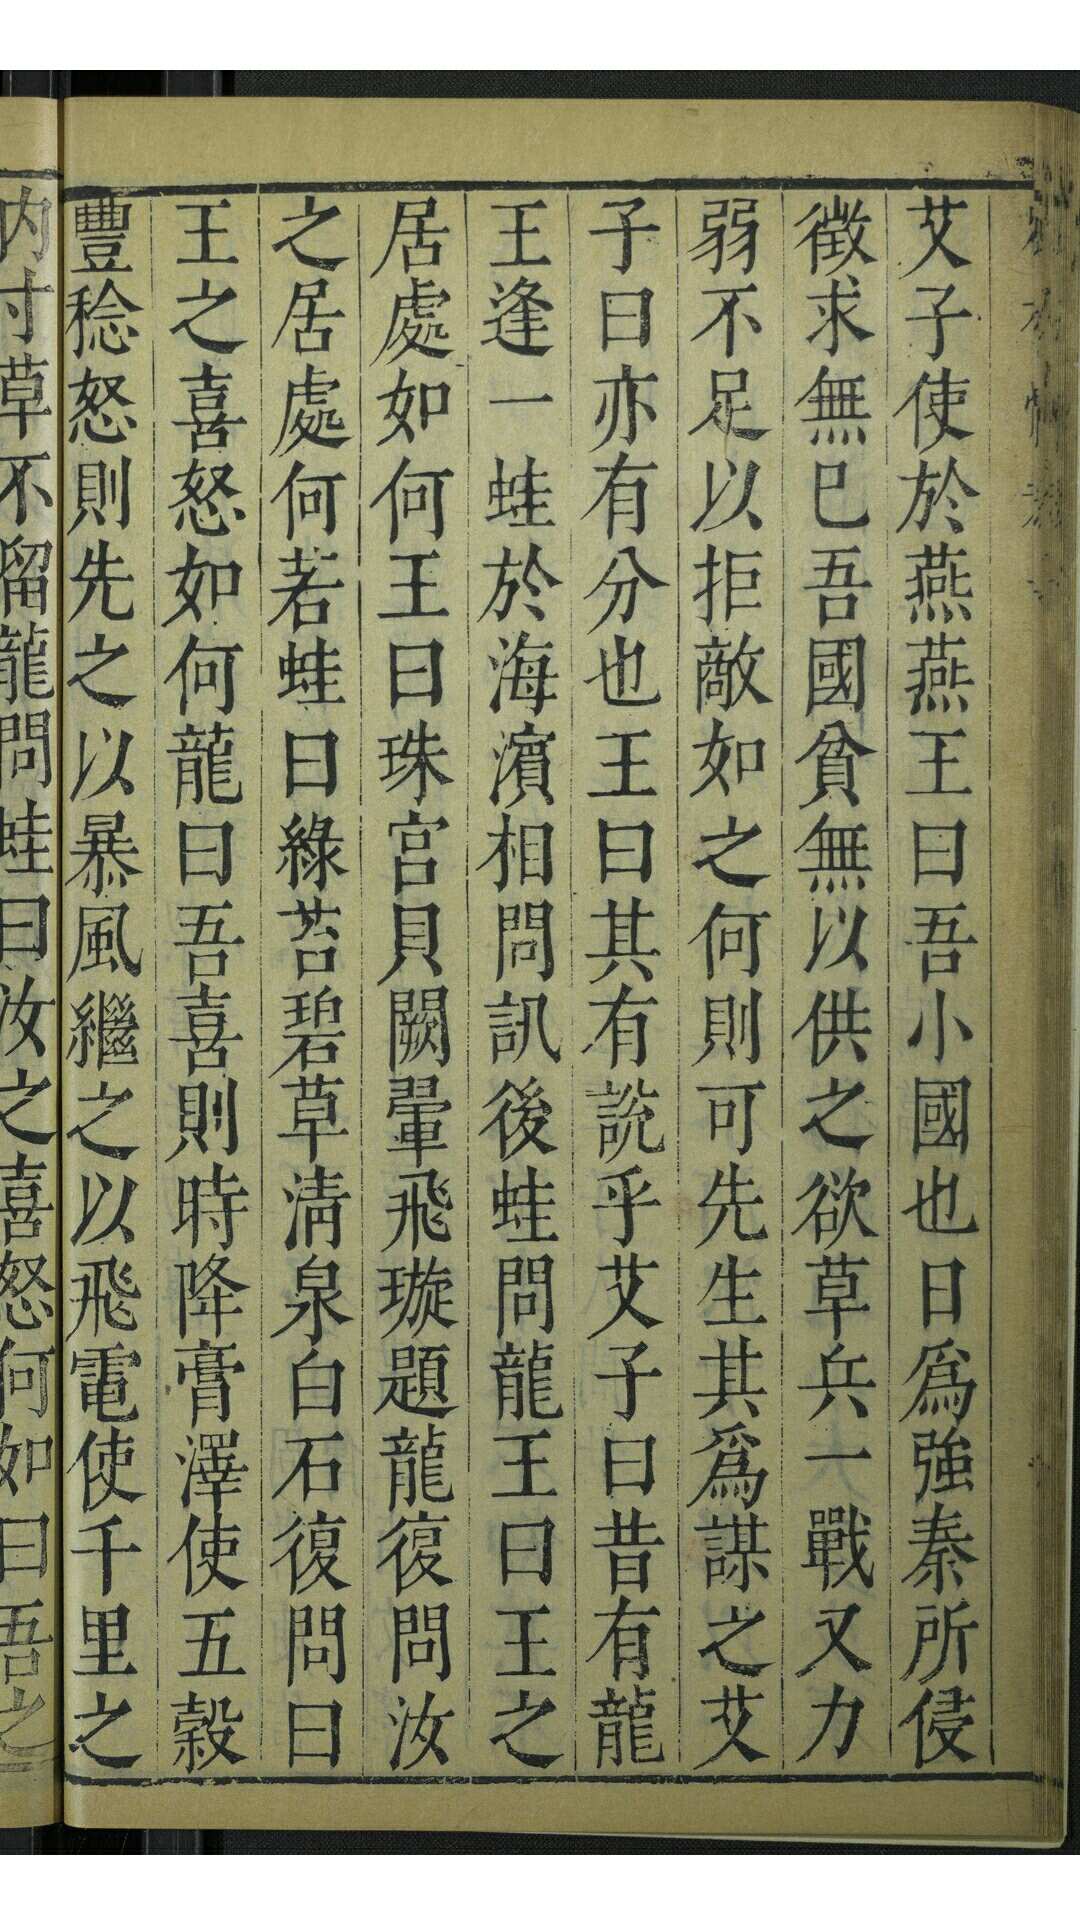 艾子使於燕燕王曰吾小國也日爲強秦所侵
徵求無已吾國貧無以供之欲草兵一戰又力
弱不足以拒敵如之何則可先生其爲謀之艾
子曰亦有分也王曰其有説乎艾子曰昔有龍
王逢一蛙於海濵相問訊後蛙問龍王曰王之
居處如何王曰珠宮貝闕翬飛璇題龍復問汝
之居處何若蛙曰綠苔碧草清泉白石復問曰
王之喜怒如何龍曰吾喜則時降膏澤使五榖
豐稔怒則先之以暴風繼之以飛電使千里之
内寸草不留龍問蛙曰汝之喜怒何如曰吾之